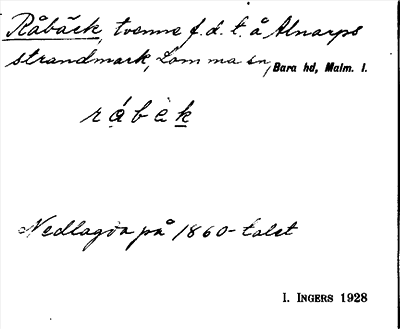 Råbäck, tvenne f.d. t. å Alnarps
strandmark, Lomma sn, Bara hd, Malm. l.
råbèk
Nedlagda på 1860-talet
I. INGERS 1928